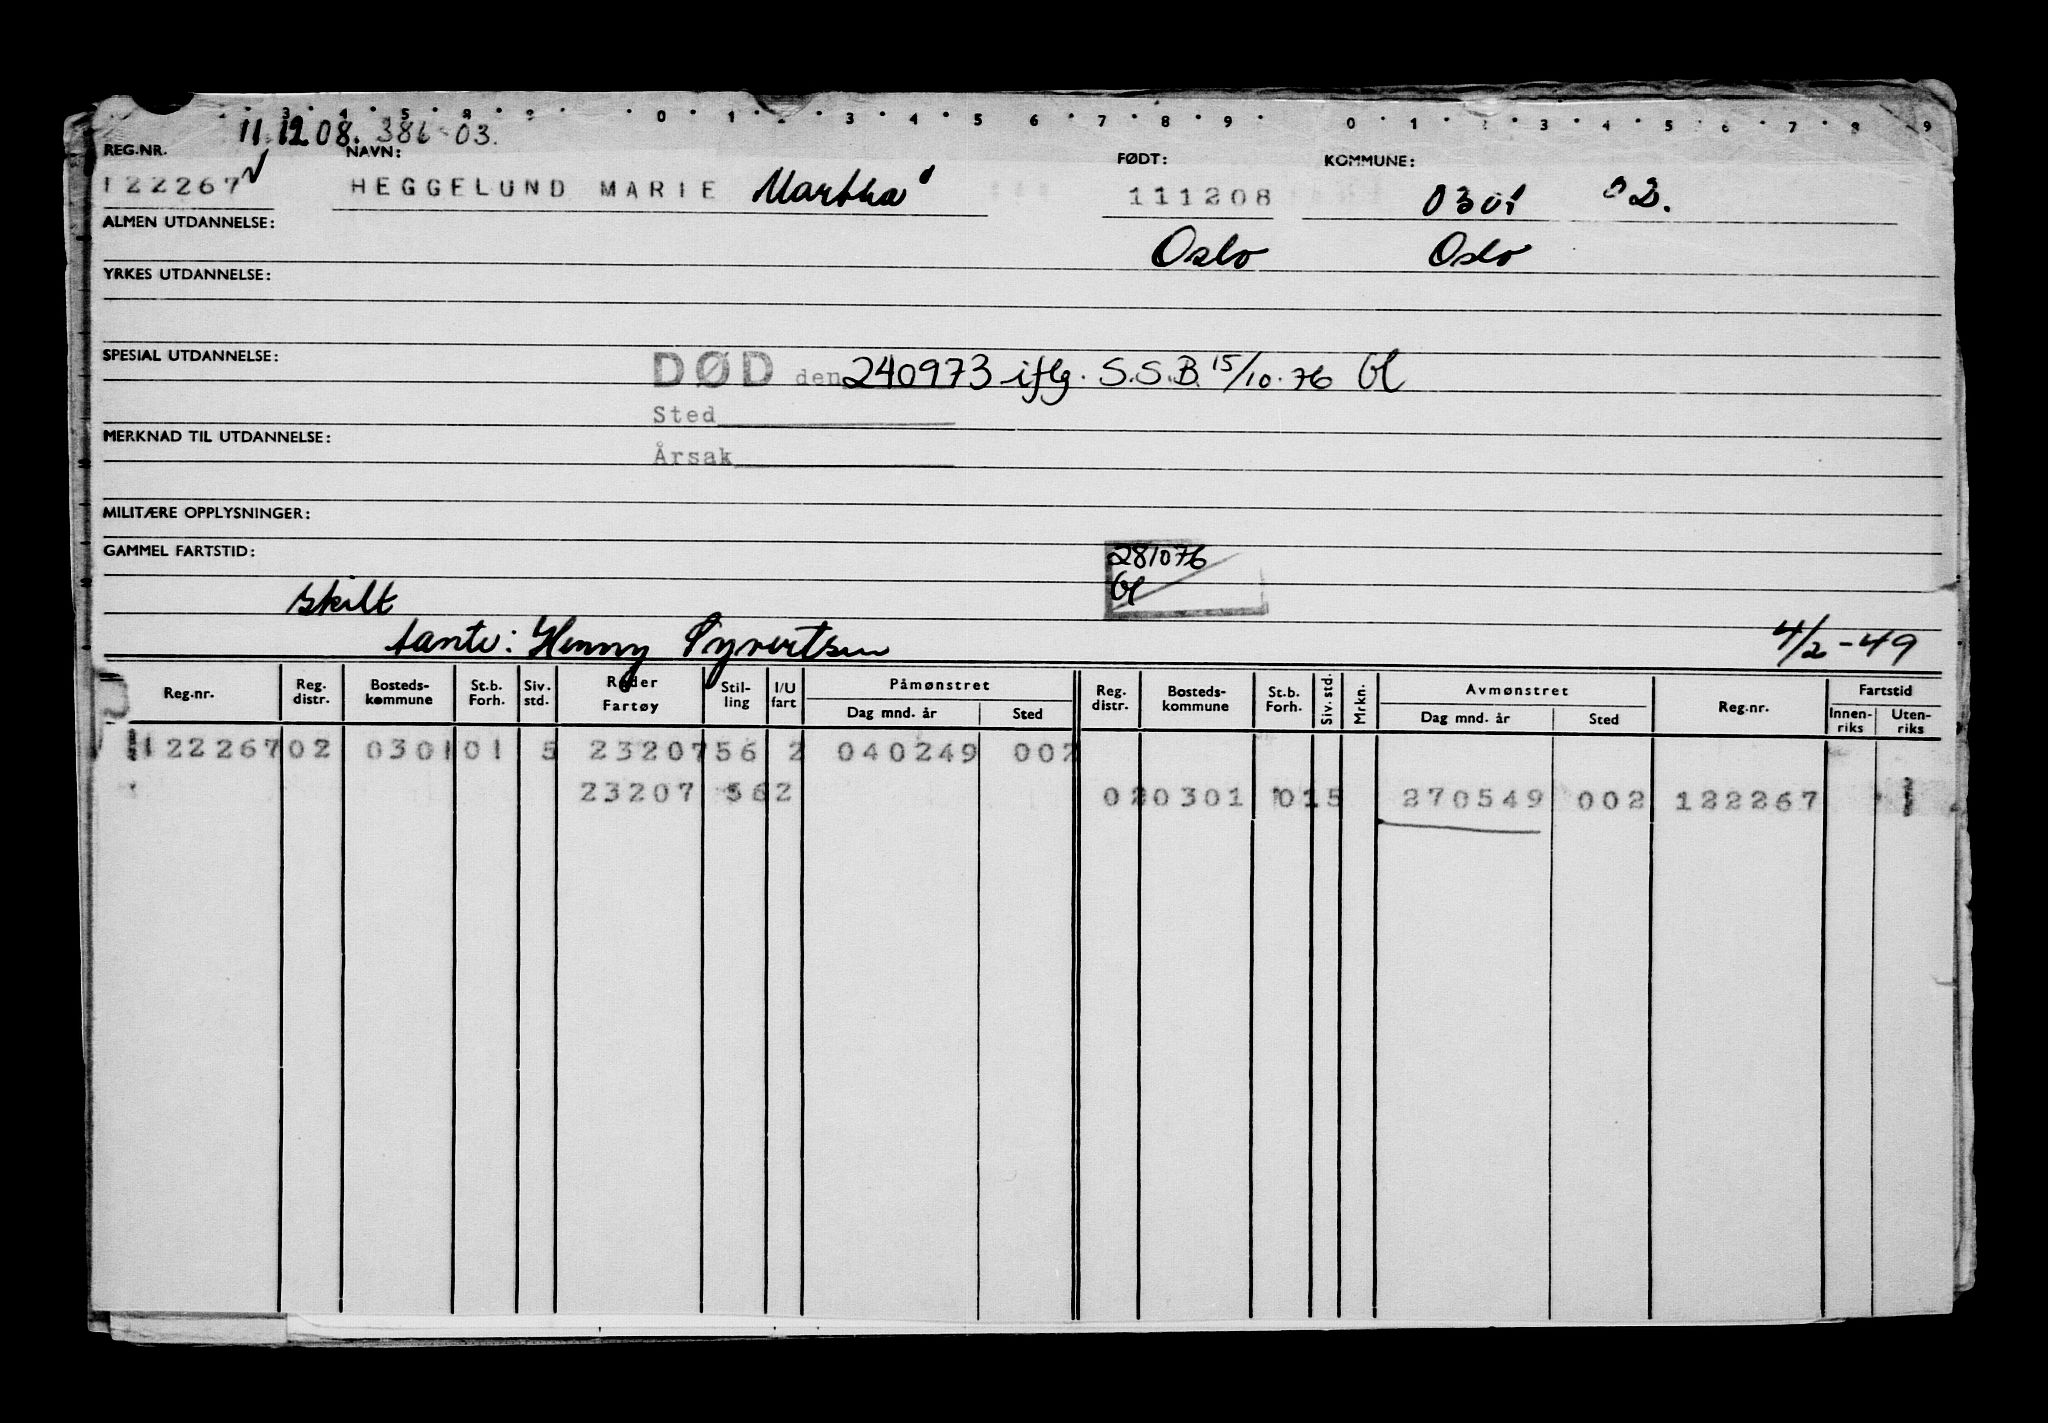 3 4 5 0 1 3 4 5 6 7 8 9 0 1 2 3 4 5 6 7 8 9
11.12.08. 386 03.
REG.NR. NAVN: FØDT: KOMMUNE:
122267 HEGGELUND MARIE Martha 111208 0301 02.
ALMEN UTDANNELSE: Oslo Oslo
YRKES UTDANNELSE:
SPESIAL UTDANNELSE: DØD den 240973 iflg. S.S.B. 15/10.76 Gl
Sted
MERKNAD TIL UTDANNELSE:
Årsak
MILITÆRE OPPLYSNINGER:
GAMMEL FARTSTID: 281076
Gl
skilt
tante: Henny Syvertsen 4/2-49
Reg.nr. Reg. distr. Bosteds-kommune St.b. Forh. Siv. std. Reder Fartøy Stil-ling I/U fart Påmønstret Dag mnd. år Sted Reg. distr. Bosteds-kommune St.b. Forh. Siv. std. Mrkn. Avmønstret Dag mnd. år Sted Reg.nr. Fartstid Innen-riks Uten-riks
122267 02 0301 01 5 23207 56 2 040249 002
23207 56 2 02 0301 01 5 270549 002 122267